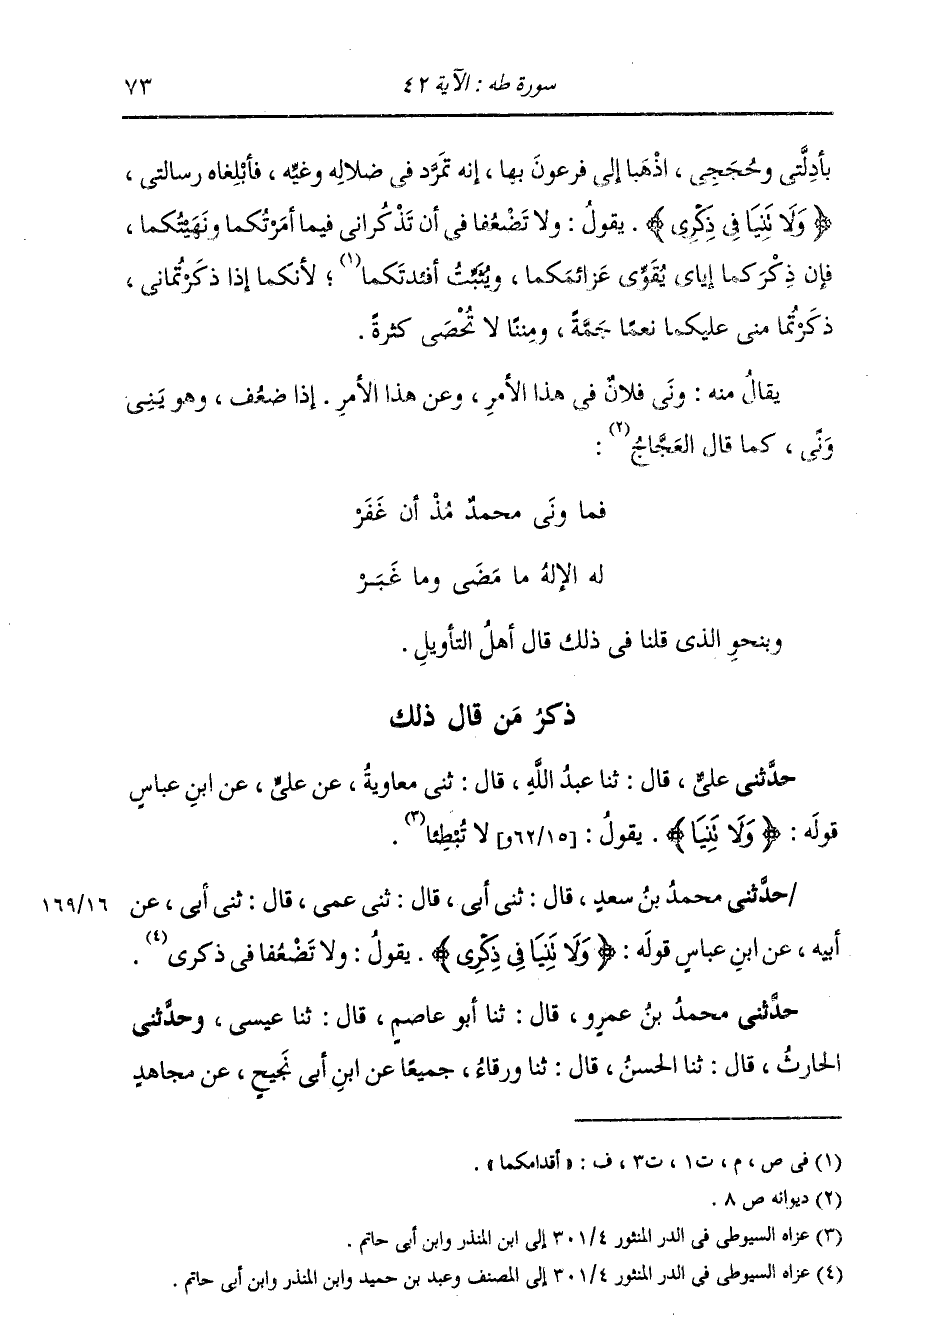 سورة طه : الآية ٤٢
٧٣
بأدِلَّتى وحُجَجِى ، اذْهَبا إلى فرعونَ بها ، إنه تمَرَّد فى ضلالِه وغيِّه ، فأبْلِغاه رسالتى ،
﴿ وَلَا نَنِيَا فِى ذِكْرِى ﴾ . يقولُ : ولا تَضْعُفا فى أن تَذْكُرانى فيما أمَرْتُكما ونَهَيْتُكما ،
فإن ذِكْرَكما إياى يُقَوِّى عَزائمَكما ، ويُثَبِّتُ أفئدتَكما(١) ؛ لأنكما إذا ذكَرْتُمانى ،
ذكَرْتُما منى عليكما نعمًا جَمَّةً ، ومِننًا لا تُحْصَى كثرةً .
يقالُ منه : ونَى فلانٌ فى هذا الأمرِ ، وعن هذا الأمرِ . إذا ضعُف ، وهو يَنِى
وَنًى ، كما قال العَجَّاجُ(٢) :
فما ونَى محمدٌ مُذْ أن غَفَرْ
له الإلهُ ما مَضَى وما غَبَرْ
وبنحوِ الذى قلنا فى ذلك قال أهلُ التأويلِ .
ذكرُ مَن قال ذلك
حدَّثنى علىٌّ ، قال : ثنا عبدُ اللَّهِ ، قال : ثنى معاويةُ ، عن علىٍّ ، عن ابنِ عباسٍ
قولَه : ﴿ وَلَا نَنِيَا ﴾ . يقولُ : [٦٢/١٥و] لا تُبْطِئا(٣) .
/حدَّثنى محمدُ بنُ سعدٍ ، قال : ثنى أبى ، قال : ثنى عمى ، قال : ثنى أبى ، عن ١٦٩/١٦
أبيه ، عن ابنِ عباسٍ قولَه : ﴿ وَلَا نَنِيَا فِى ذِكْرِى ﴾ . يقولُ : ولا تَضْعُفا فى ذكرى(٤) .
حدَّثنى محمدُ بنُ عمرٍو ، قال : ثنا أبو عاصمٍ ، قال : ثنا عيسى ، وحدَّثنى
الحارثُ ، قال : ثنا الحسنُ ، قال : ثنا ورقاءُ ، جميعًا عن ابنِ أبى نَجيحٍ ، عن مجاهدٍ
(١) فى ص ، م ، ت١ ، ت٣ ، ف : « أقدامكما » .
(٢) ديوانه ص ٨ .
(٣) عزاه السيوطى فى الدر المنثور ٣٠١/٤ إلى ابن المنذر وابن أبى حاتم .
(٤) عزاه السيوطى فى الدر المنثور ٣٠١/٤ إلى المصنف وعبد بن حميد وابن المنذر وابن أبى حاتم .